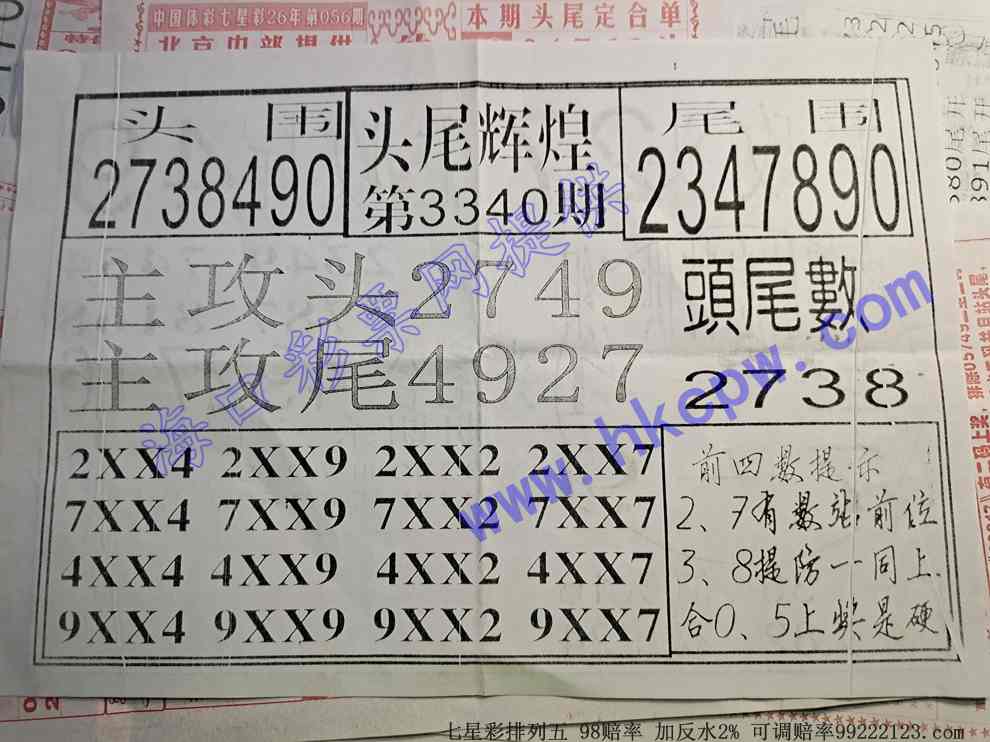 中国体彩七星彩26年第056期
本期头尾定合单
北京中部提供
头围
2738490
头尾辉煌
第3340期
尾围
2347890
主攻头2749
主攻尾4927
頭尾數
2738
2XX4 2XX9 2XX2 2XX7
7XX4 7XX9 7XX2 7XX7
4XX4 4XX9 4XX2 4XX7
9XX4 9XX9 9XX2 9XX7
前四数提示
2、7有数站前位
3、8提防一同上
合0、5上奖是硬
海口彩票网提供
www.hkcpw.com
七星彩排列五 98赔率 加反水2% 可调赔率99222123.com